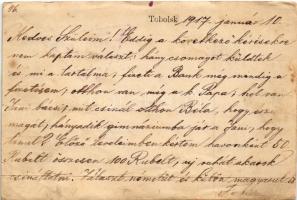 86.
Tobolsk 1917. január 10.
Kedves Szüleim! Eddig a következő kérésekre
nem kaptam választ: hány csomagot küldtek
és mi a tartalma; fizeti a Bank még mindig a
fizetésem; otthon van még a k. Papa; hol van
Imi bácsi; mit csinál otthon Béla, hogy érzi
magát; hányadik gimnaziumba jár a Jani, hogy
tanul? Előző leveleimben kértem havonként 50
Rubelt összesen 100 Rubelt, új ruhát akarok
csináltatni. Választ németül és külön magyarul is